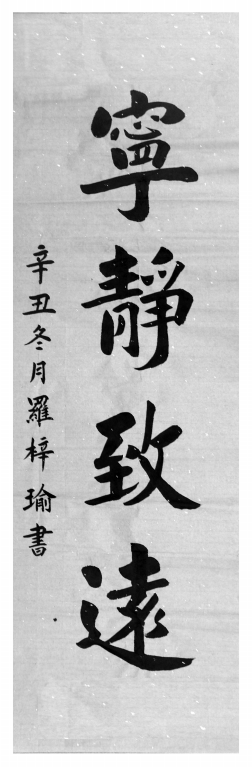 寧靜致遠
辛丑冬月羅梓瑜書